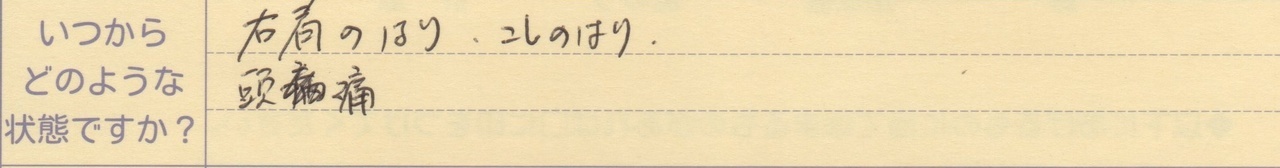 いつから
どのような
状態ですか？
右肩のはり、こしのはり.
頭痛